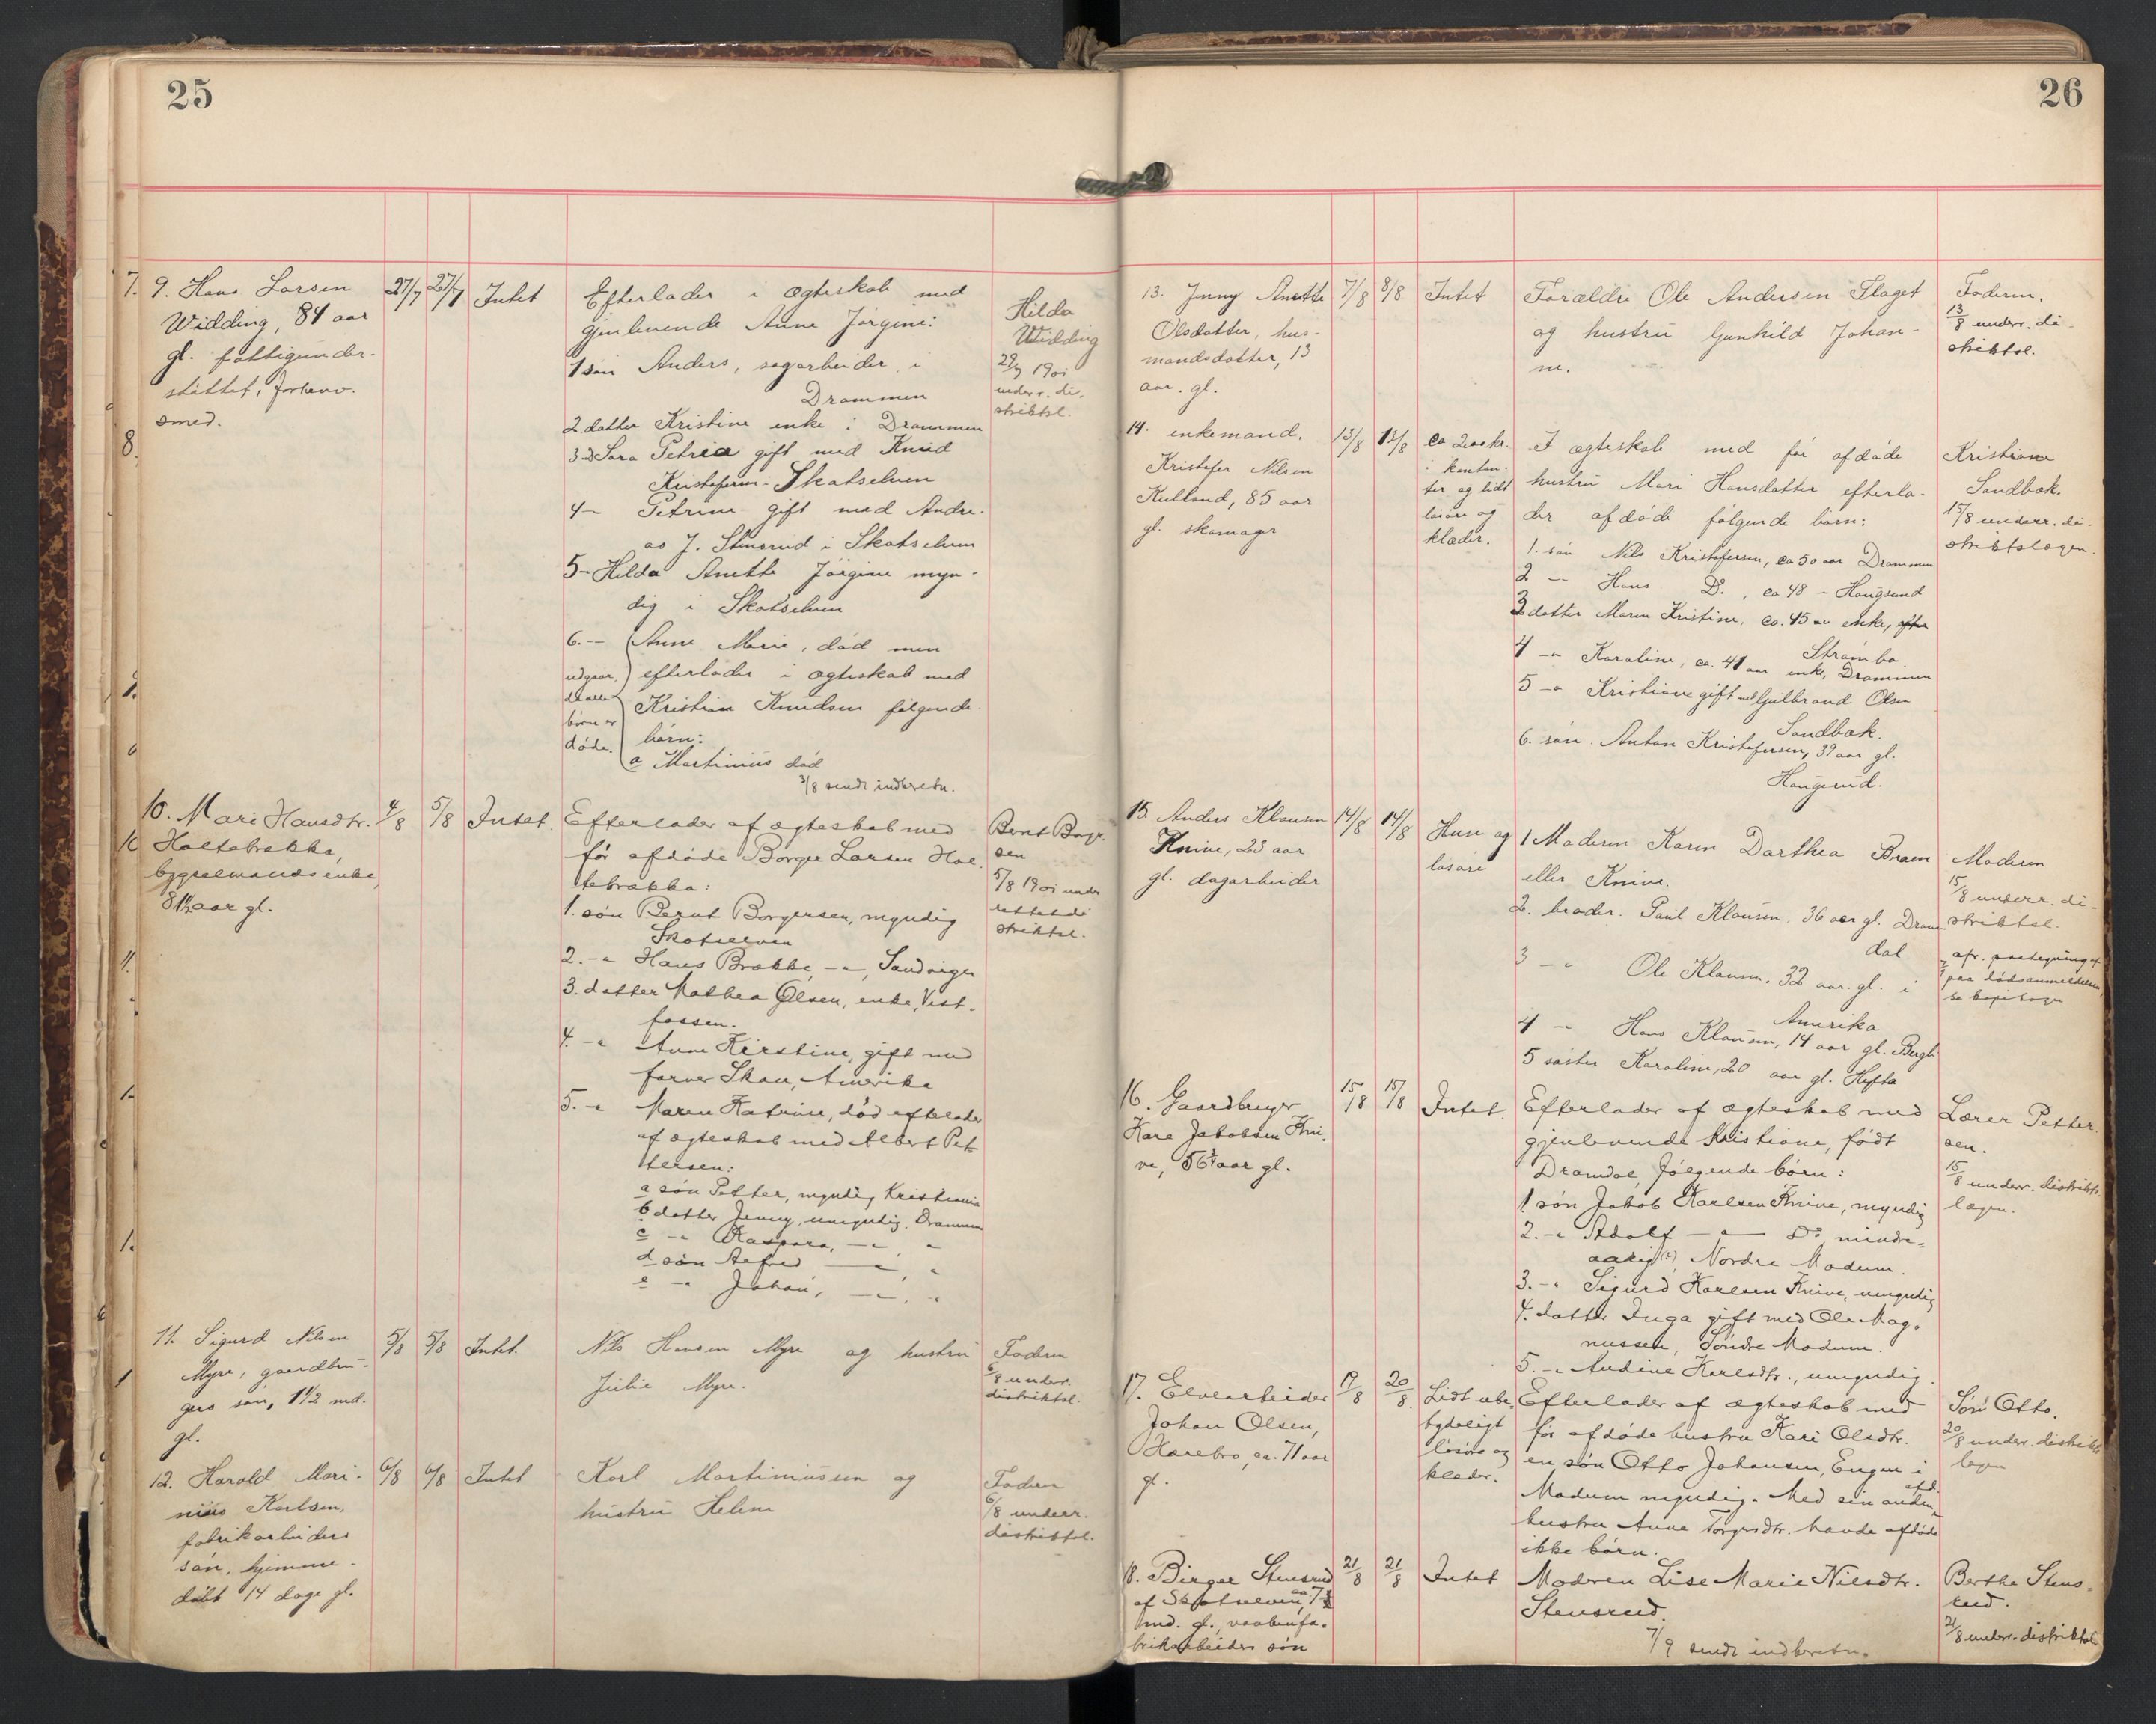 25
9. Hans Larsen
Widding, 84 aar
gl. fattigunder-
støttet, forhenv.
smed.
27/7 27/7 Intet
Efterlader i ægteskab med
gjenlevende Anne Jørgine:
1 søn Anders, sagarbeider i
Drammen
2. datter Kristine enke i Drammen
3. D. Sara Petrea gift med Knud
Kristofersen - Skotselven
4 - Petrine gift med Andre-
as J. Stensrud i Skotselven
5 - Hilda Anette Jørgine myn-
dig i Skotselven
6. - Anne Marie, död men
efterlader i ægteskab med
Kristian Knudsen følgende
børn:
a Martinius död
udgaar,
da alle
børn er
døde.
3/8 sendt indberetn.
Hilda
Widding
29/7 1901
underr. di-
striktsl.
10. Mari Hansdtr.
Holtebrække,
bygselmands enke,
81½ aar gl.
4/8 5/8 Intet.
Efterlader af ægteskab med
før afdøde Borger Larsen Hol-
tebrække:
1. søn Bernt Borgersen, myndig
Skotselven
2. -"- Hans Brække, -"-, Sandvigen
3. datter Mathea Olsen, enke, Vest-
fossen.
4. -"- Anne Kirstine, gift med
farver Skau, Amerika
5. -"- Maren Katrine, död efterlader
af ægteskab med Albert Pet-
tersen:
a søn Petter, myndig Kristiania
b datter Jenny, umyndig, Drammen
c -"- Kaspara, -"-, "
d søn Alfred -"-, "
e -"- Johan, -"-, "
Bernt Borger-
sen
5/8 1901 under
rettet di
striktsl.
11. Sigurd Nilsen
Myre, gaardbru-
gers søn, 1½ md.
gl.
5/8 5/8 Intet.
Nils Hansen Myre og hustru
Julie Myre.
Faderen
6/8 underr.
distriktsl.
12. Harald Mari-
nius Karlsen,
fabrikarbeiders
søn, hjemme-
døbt 14 dage gl.
6/8 6/8 Intet
Karl Martiniussen og
hustru Helene
Faderen
6/8 underr.
distriktsl.
26
13. Jenny Anette
Olsdatter, hus-
mandsdatter, 13
aar. gl.
7/8 8/8 Intet
Forældre Ole Andersen Flaget
og hustru Gunhild Johan-
ne.
Faderen.
13/8 underr. di-
striktsl.
14. enkemand,
Kristofer Nilsen
Kulland, 85 aar
gl. skomager
13/8 13/8 ca 200 kr.
i kontan-
ter og lidt
løsøre og
klæder.
I ægteskab med før afdøde
hustru Mari Hansdatter efterla-
der afdøde følgende børn:
1. søn Nils Kristofersen, ca 50 aar Drammen
2 -"- Hans Do., ca 48 - Hougsund
3 datter Maren Kristine, ca. 45 aar enke,
Strømbo.
4 -"- Karoline, ca. 41 aar enke, Drammen
5 -"- Kristiane gift med Gulbrand Olsen
Sandbæk.
6. søn. Anton Kristofersen, 39 aar gl.
Hougsund.
Kristiane
Sandbæk.
15/8 underr. di-
striktslægen.
15. Anders Klausen
Knive, 23 aar
gl. dagarbeider
14/8 14/8 Huse og
løsøre
1 Moderen Karen Dorthea Bræn
eller Knive.
2. broder. Paul Klausen, 36 aar gl. Dram-
dal
3 -"- Ole Klausen, 32 aar. gl. i
Amerika
4 -"- Hans Klausen, 14 aar gl. Bergli
5 søster Karoline, 20 aar gl. Hefta
Moderen
15/8 underr. di-
striktsl.
paa dødsanmeldelsen,
se kopibogen
16. Gaardbruger
Karl Jakobsen Kni-
ve, 56¾ aar gl.
15/8 15/8 Intet.
Efterlader af ægteskab med
gjenlevende Kristiane, født
Dramdal, følgende børn:
1 søn Jakob Karlsen Knive, myndig
2. -"- Adolf -"- Do, mindre-
aarig (?) Nordre Modum.
3. -"- Sigurd Karlsen Knive, umyndig
4. datter Inga gift med Ole Mag-
nussen, Søndre Modum.
5. -"- Andine Karlsdtr., umyndig.
Lærer Petter-
sen.
15/8 underr. distrikts-
lægen.
17. Elvearbeider
Johan Olsen,
Harebro, ca. 71 aar
gl.
19/8 20/8. Lidt ube-
tydeligt
løsøre og
klæder.
Efterlader af ægteskab med
før afdøde hustru Kari Olsdtr.
en søn Otto Johansen, Engen i
Modum myndig. Med sin anden afd.
hustru Anne Torgersdtr. havde afdøde
ikke børn.
Søn Otto.
20/8 underr. distrikts
lægen
18. Birger Stensrud
af Skotselven, ca 7½
md. gl., vaabenfa-
brikarbeiders søn
21/8 21/8 Intet
Moderen Lise Marie Nilsdtr.
Stensrud.
7/9 sendt indberetn.
Berthe Stens-
rud.
21/8 underr. distriktsl.